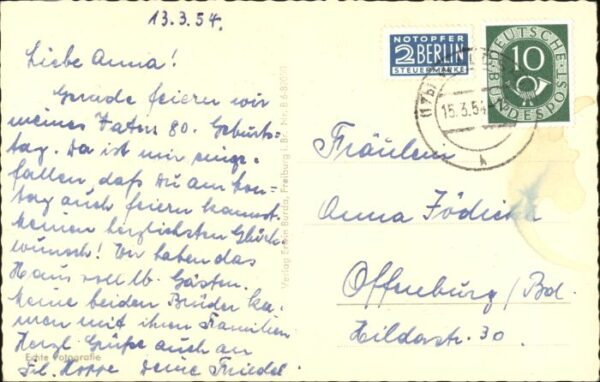 13.3.54.
Liebe Anna!
Gerade feiern wir
meines Vaters 80. Geburts-
tag. Da ist mir einge-
fallen, daß Du am Son-
tag auch feiern kannst.
Meinen herzlichsten Glück-
wunsch! Wir haben das
Haus voll lb. Gästen.
Meine beiden Brüder ka-
men mit ihren Familien
Herzl. Grüße auch an
Frl. Hoppe Deine Friedel
Echte Fotografie
Verlag Erwin Burda, Freiburg i. Br.
NOTOPFER
2 BERLIN
STEUERMARKE
DEUTSCHE BUNDESPOST
10
(17b)
15.3.54
Fräulein
Anna
Offenburg/Bd.
Hildastr. 30.